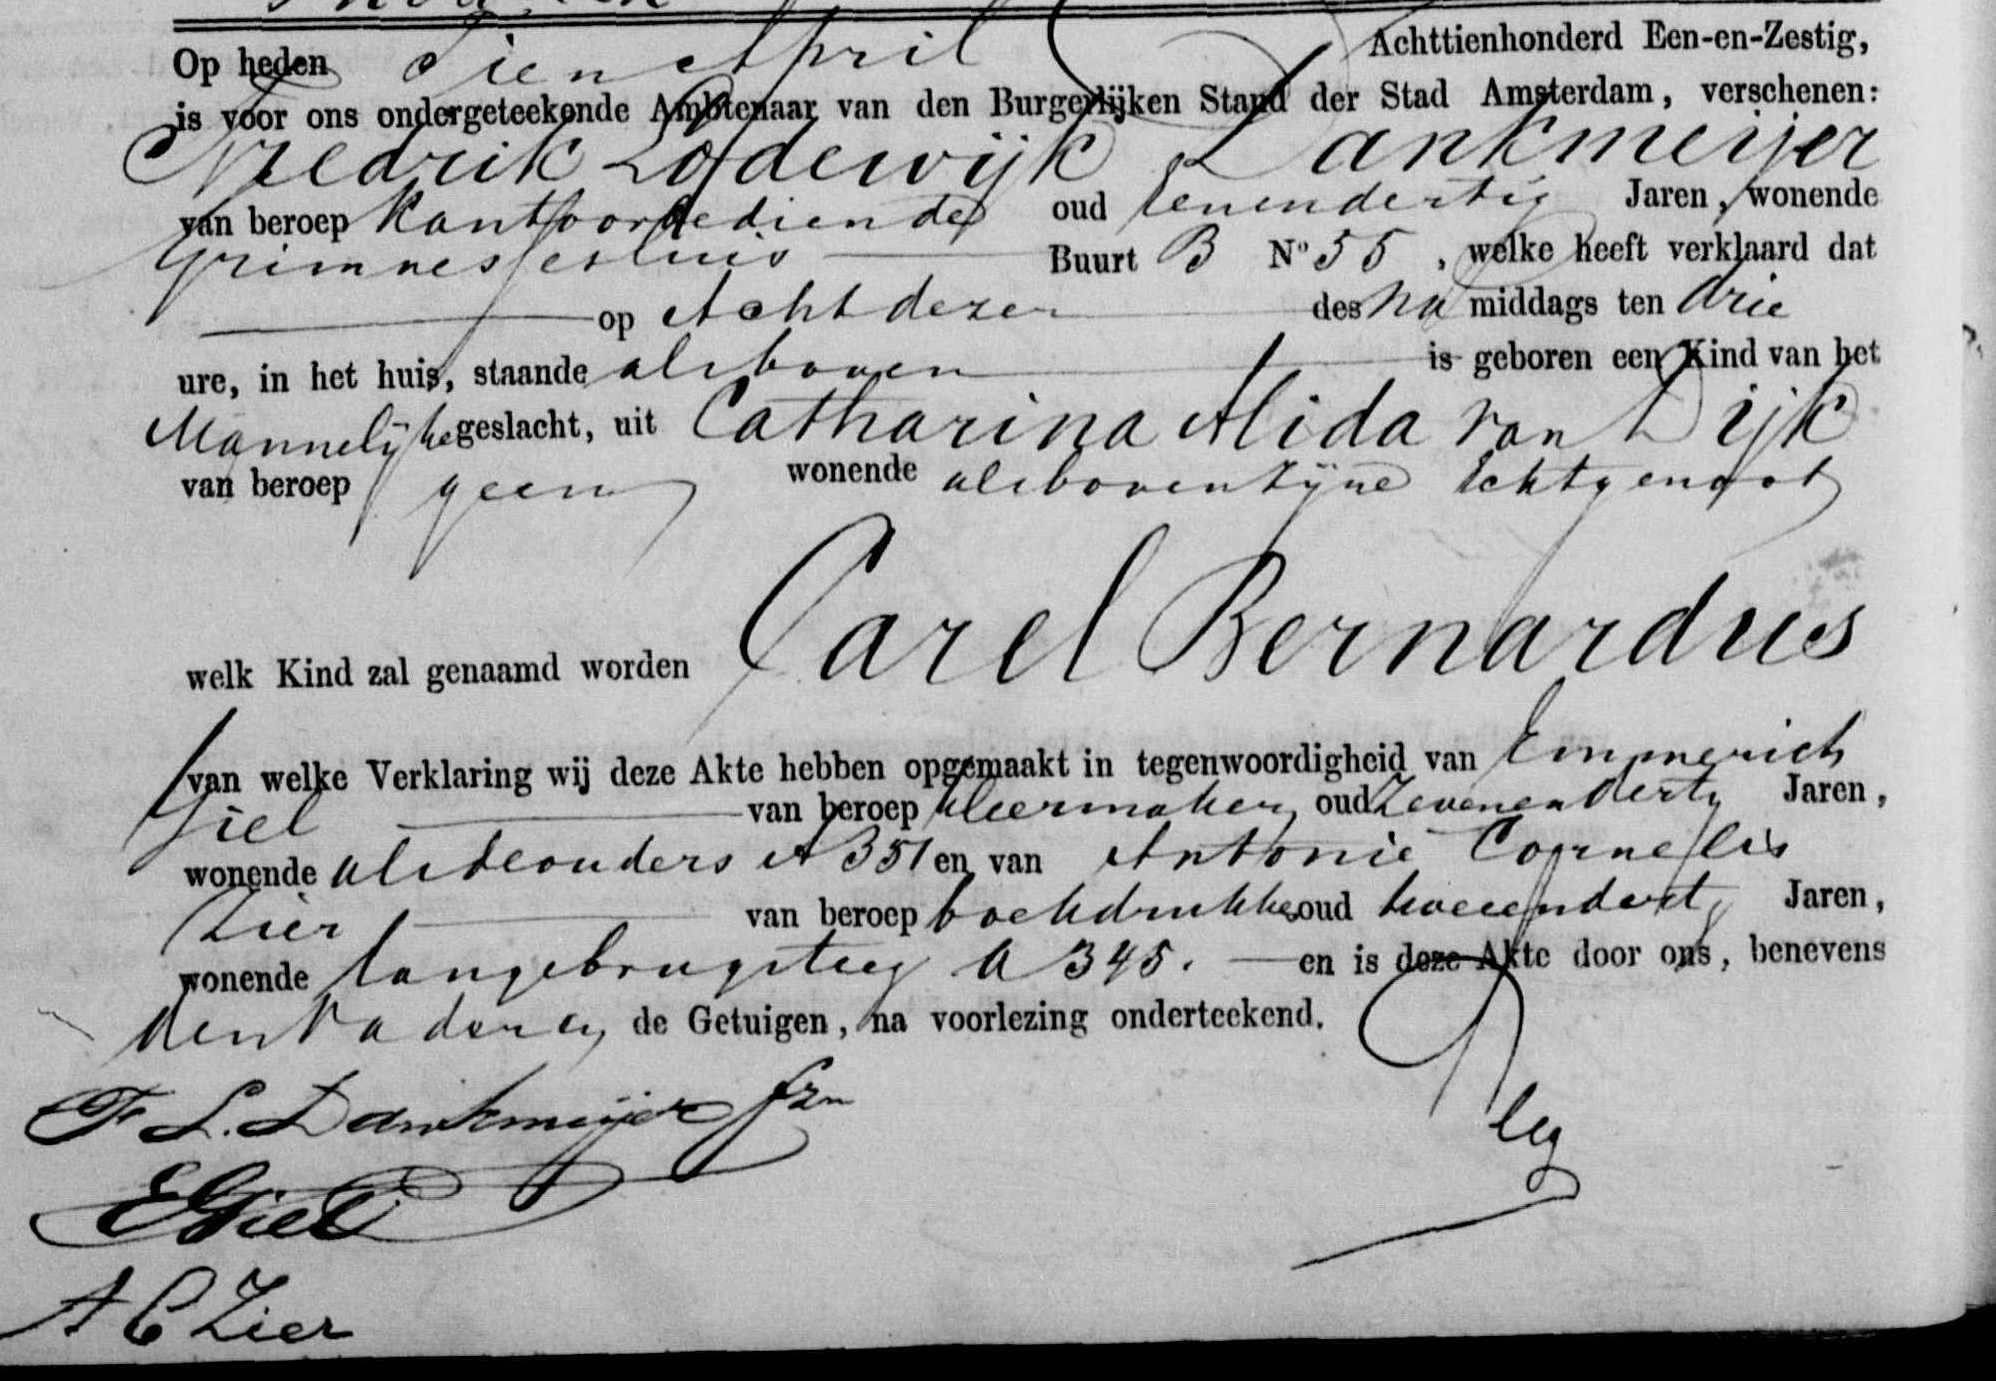 Op heden Tien April Achttienhonderd Een-en-Zestig,
is voor ons ondergeteekende Ambtenaar van den Burgerlijken Stand der Stad Amsterdam, verschenen:
Fredrik Lodewijk Dankmeijer
van beroep Kantoorbediende oud eenendertig Jaren, wonende
Grimnessesluis Buurt B No 55, welke heeft verklaard dat
op Acht dezer des na middags ten drie
ure, in het huis, staande alsboven is geboren een Kind van het
Mannelijke geslacht, uit Catharina Alida van Dijk
van beroep geen wonende alsboven zijne Echtgenoot
welk Kind zal genaamd worden Carel Bernardus
van welke Verklaring wij deze Akte hebben opgemaakt in tegenwoordigheid van Emmerich
Giel van beroep kleermaker oud Zevenendertig Jaren,
wonende als de ouders A 351 en van Antonie Cornelis
Zier van beroep boekdrukker oud tweeendertig Jaren,
wonende langebrugsteeg A 345. en is deze Akte door ons, benevens
den Vader en de Getuigen, na voorlezing onderteekend.
F. L. Dankmeijer Fzn
EGiel
A C Zier